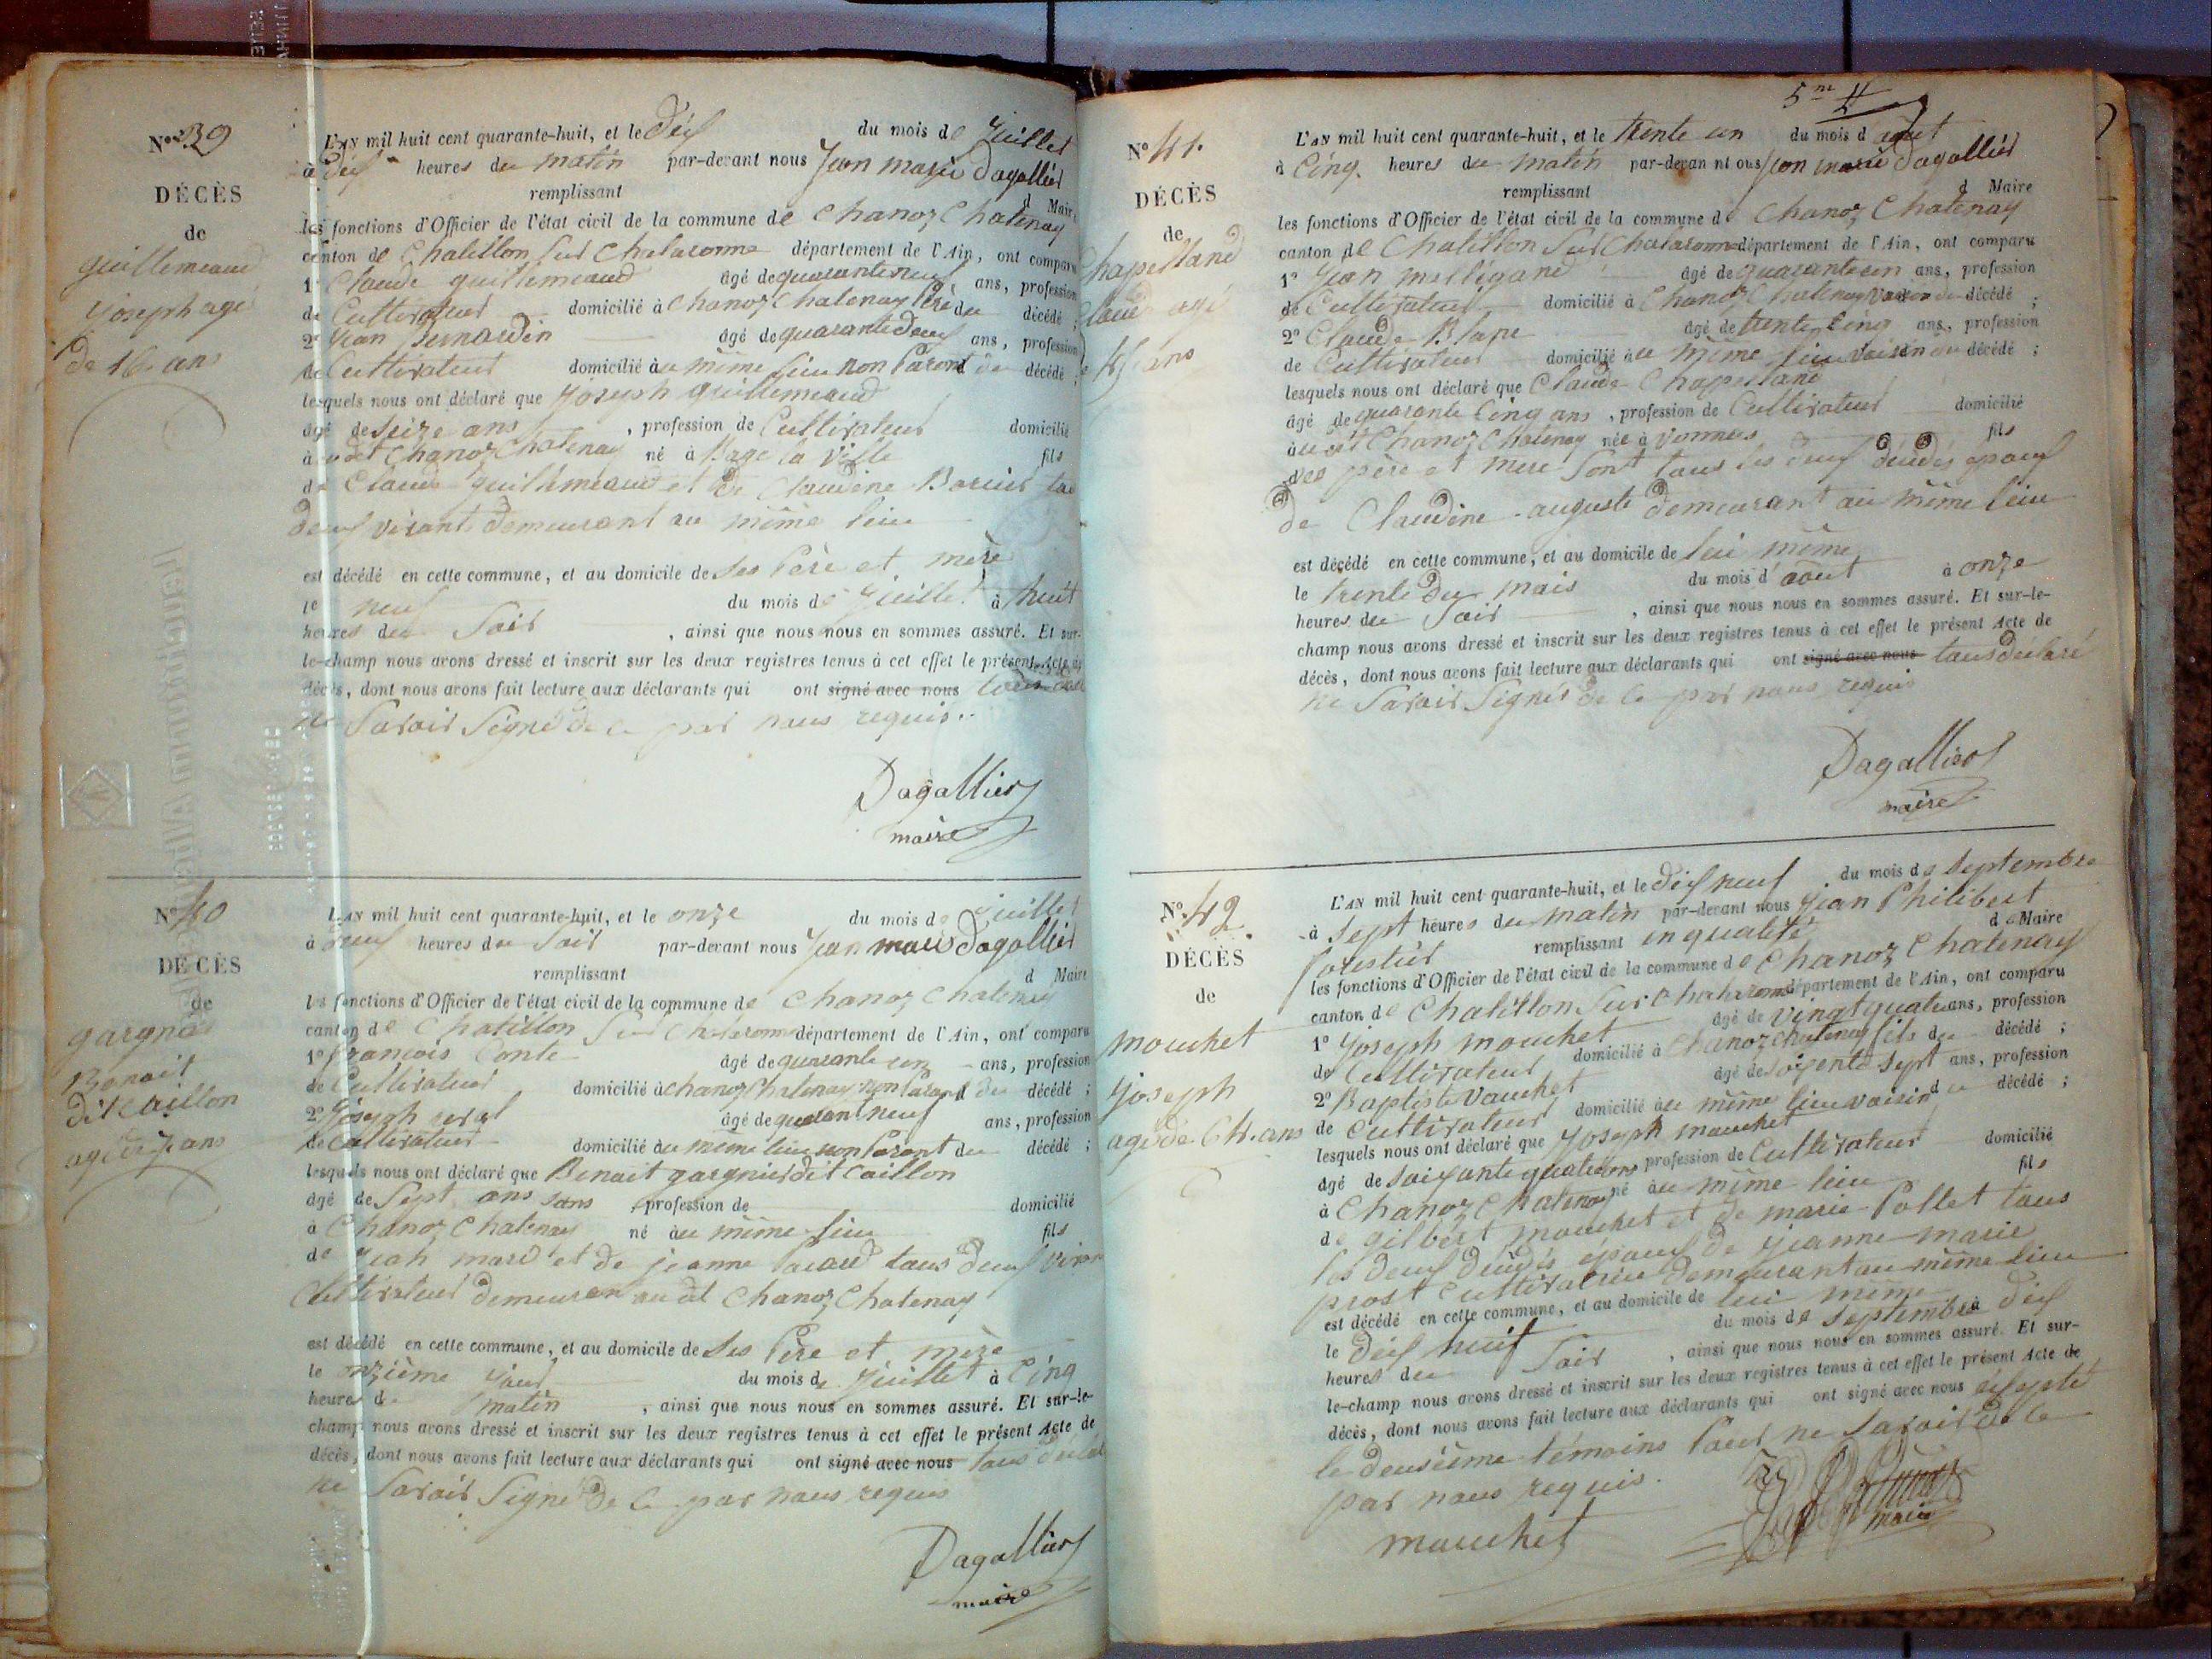 No 39
DÉCÈS
de
guillemeaud
joseph agé
de 16 ans
L'AN mil huit cent quarante-huit, et le dix du mois de juillet
à dix heures du matin par-devant nous jean marie Dagallier
remplissant d Maire
les fonctions d'Officier de l'état civil de la commune de Chanoz Chatenay
canton de Chatillon sur Chalaronne département de l'Ain, ont comparu
1° Claude guillemeaud âgé de quarante neuf ans, profession
de Cultivateur domicilié à Chanoz Chatenay Père du décédé ;
2° jean Bernardin âgé de quarante deux ans, profession
de Cultivateur domicilié au même lieu non Parent du décédé ;
lesquels nous ont déclaré que joseph guillemeaud
âgé de seize ans , profession de Cultivateur domicilié
à udit Chanoz Chatenay né à Bage la ville fils
de Claude guillemeaud et de Claudine
deux vivant demeurant au même lieu
est décédé en cette commune, et au domicile de ses Père et mère
le neuf du mois de juillet à huit
heures du Soir , ainsi que nous nous en sommes assuré. Et sur-
le-champ nous avons dressé et inscrit sur les deux registres tenus à cet effet le présent Acte de
décès, dont nous avons fait lecture aux déclarants qui ont signé avec nous
ne Savoir Signé de ce par nous requis.
Dagallier
maire
No 40
DÉCÈS
de
gargnie
Benoit
dit Caillon
agé 7 ans
L'AN mil huit cent quarante-huit, et le onze du mois de juillet
à neuf heures du Soir par-devant nous jean marie Dagallier
remplissant d Maire
les fonctions d'Officier de l'état civil de la commune de Chanoz Chatenay
canton de Chatillon sur Chalaronne département de l'Ain, ont comparu
1° françois Conte âgé de quarante un ans, profession
de Cultivateur domicilié à Chanoz Chatenay non Parent du décédé ;
2° joseph âgé de quarant neuf ans, profession
de Cultivateur domicilié au même lieu non Parent du décédé ;
lesquels nous ont déclaré que Benoit gargnier dit Caillon
âgé de Sept ans sans , profession de domicilié
à Chanoz Chatenay né au même lieu fils
de jean marie et de jeanne tous deux
Cultivateur demeurant audit Chanoz Chatenay
est décédé en cette commune, et au domicile de ses Père et mère
le onzième jour du mois de juillet à Cinq
heures d matin , ainsi que nous nous en sommes assuré. Et sur-le-
champ nous avons dressé et inscrit sur les deux registres tenus à cet effet le présent Acte de
décès, dont nous avons fait lecture aux déclarants qui ont signé avec nous tous
ne Savoir Signé de ce par nous requis
Dagallier
maire
5me
No 41.
DÉCÈS
de
Chapelland
Claude agé
45 ans
L'AN mil huit cent quarante-huit, et le trente un du mois d août
à Cinq heures du matin par-devan nt ous jean marie Dagallier
remplissant d Maire
les fonctions d'Officier de l'état civil de la commune de Chanoz Chatenay
canton de Chatillon sur Chalaronne département de l'Ain, ont comparu
1° jean âgé de quarante un ans, profession
de Cultivateur domicilié à Chanoz Chatenay voisin du décédé ;
2° Claude Blape âgé de trente Cinq ans, profession
de Cultivateur domicilié au même lieu voisin du décédé ;
lesquels nous ont déclaré que Claude Chapelland
âgé de quarante Cinq ans , profession de Cultivateur domicilié
à udit Chanoz Chatenay née à Vonnas fils
des père et mère Sont tous les deux décédés époux
de Claudine auguste demeurant au même lieu
est décédé en cette commune, et au domicile de lui même
le trente du mois du mois d août à onze
heures du Soir , ainsi que nous nous en sommes assuré. Et sur-le-
champ nous avons dressé et inscrit sur les deux registres tenus à cet effet le présent Acte de
décès, dont nous avons fait lecture aux déclarants qui ont signé avec nous tous déclaré
ne Savoir Signer de ce par nous requis
Dagallier
maire
No. 42
DÉCÈS
de
mouchet
joseph
agé de 64. ans
L'AN mil huit cent quarante-huit, et le dix neuf du mois de Septembre
à Sept heures du matin par-devant nous jean Philibert
forestier remplissant en qualité de Maire
les fonctions d'Officier de l'état civil de la commune de Chanoz Chatenay
canton de Chatillon Sur Chalaronne département de l'Ain, ont comparu
1° joseph mouchet âgé de vingt quatre ans, profession
de Cultivateur domicilié à Chanoz Chatenay fils du décédé ;
2° Baptiste Vauchet âgé de soixente sept ans, profession
de Cultivateur domicilié au même lieu voisin du décédé ;
lesquels nous ont déclaré que joseph mouchet
âgé de soixante quatre ans profession de Cultivateur domicilié
à Chanoz Chatenay né au même lieu fils
de gilbert mouchet et de marie Pollet tous
les deux décédés époux de jeanne marie
prost Cultivatrice demeurant au même lieu
est décédé en cette commune, et au domicile de lui même
le dix huit du mois de Septembre à dix
heures du Soir , ainsi que nous nous en sommes assuré. Et sur-
le-champ nous avons dressé et inscrit sur les deux registres tenus à cet effet le présent Acte de
décès, dont nous avons fait lecture aux déclarants qui ont signé avec nous éxsepté
le deusième témoins Pour ne Savoir de ce
par nous requis.
mouchet
maire